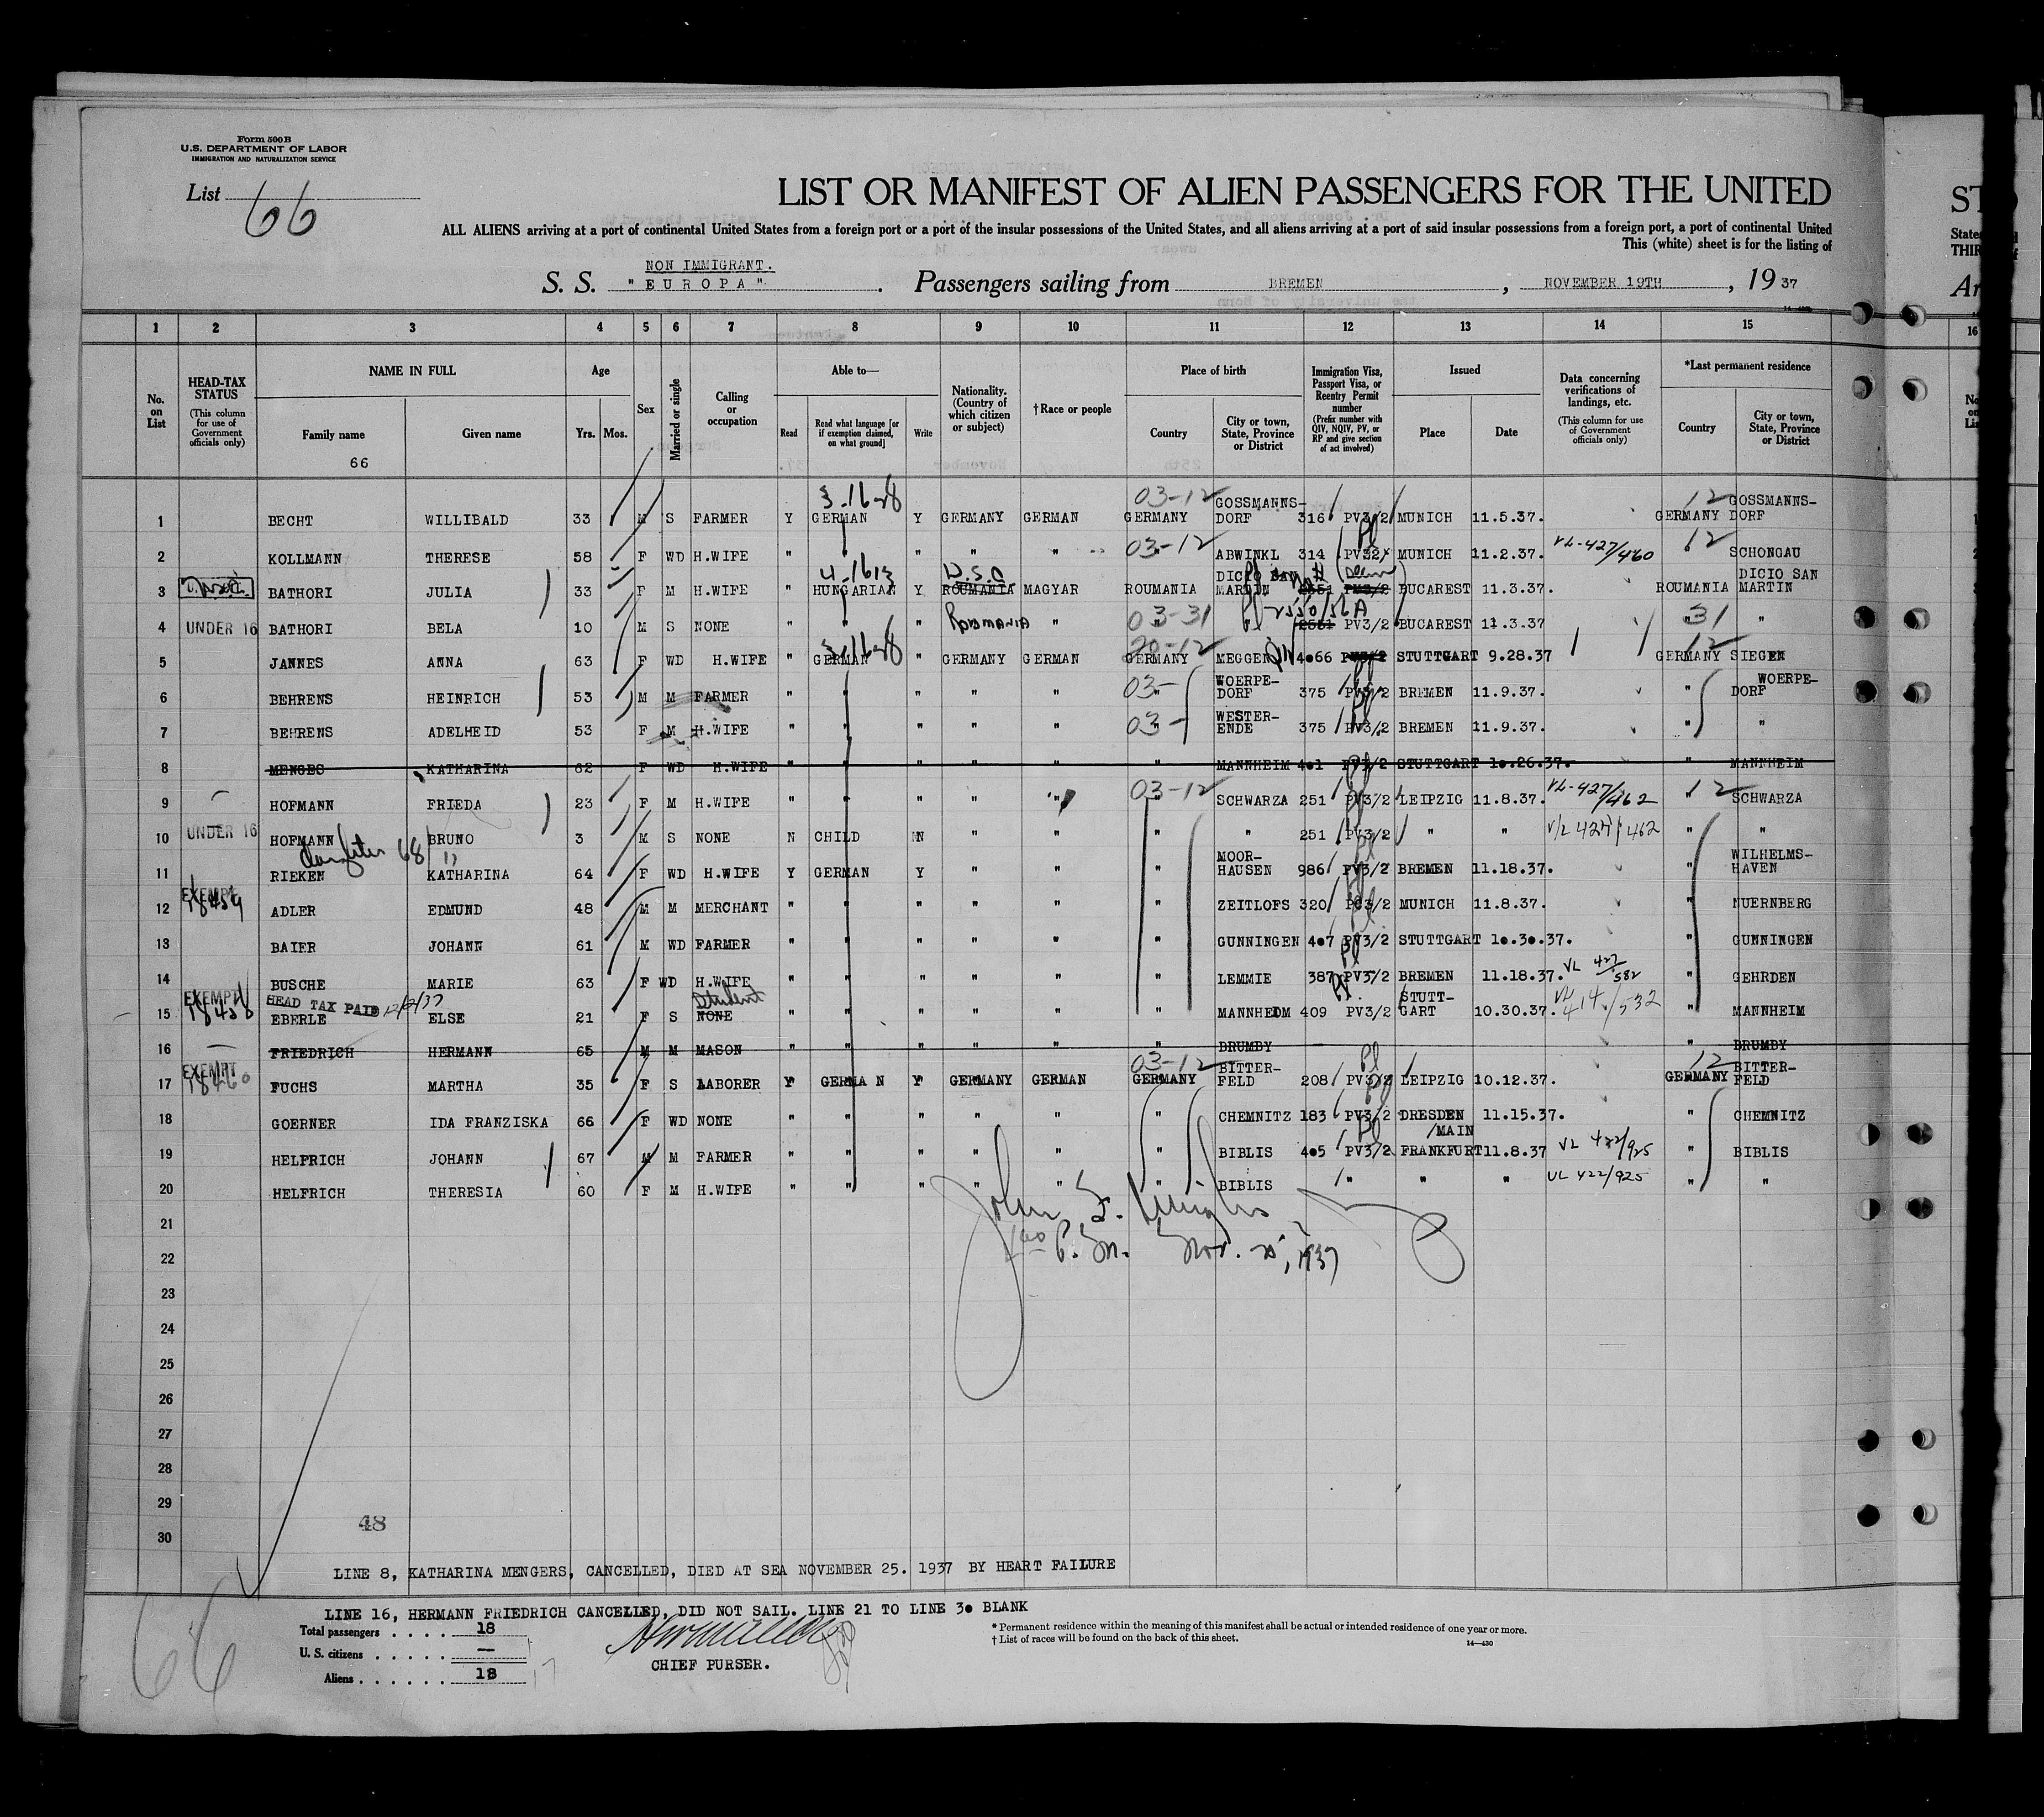 Form 500 B
U.S. DEPARTMENT OF LABOR
IMMIGRATION AND NATURALIZATION SERVICE
List 66
LIST OR MANIFEST OF ALIEN PASSENGERS FOR THE UNITED
ALL ALIENS arriving at a port of continental United States from a foreign port or a port of the insular possessions of the United States, and all aliens arriving at a port of said insular possessions from a foreign port, a port of continental United
This (white) sheet is for the listing of
NON IMMIGRANT.
S. S. "EUROPA". Passengers sailing from BREMEN, NOVEMBER 19TH, 19 37
1 2 3 4 5 6 7 8 9 10 11 12 13 14 15
No. on List
HEAD-TAX STATUS (This column for use of Government officials only)
NAME IN FULL
Family name
Given name
66
Age
Yrs. Mos.
Sex
Married or single
Calling or occupation
Able to—
Read
Read what language [or if exemption claimed, on what ground]
Write
Nationality. (Country of which citizen or subject)
†Race or people
Place of birth
Country
City or town, State, Province or District
Immigration Visa, Passport Visa, or Reentry Permit number (Prefix number with QIV, NQIV, PV, or RP and give section of act involved)
Issued
Place
Date
Data concerning verifications of landings, etc. (This column for use of Government officials only)
*Last permanent residence
Country
City or town, State, Province or District
1 BECHT WILLIBALD 33 M S FARMER Y GERMAN Y GERMANY GERMAN 03-12 GERMANY GOSSMANNS-DORF 316 PV3/2 MUNICH 11.5.37. 12 GERMANY GOSSMANNS-DORF
2 KOLLMANN THERESE 58 F WD H.WIFE " " " " " 03-12 " ABWINKL 314 PV32 MUNICH 11.2.37. VL-427/460 12 " SCHONGAU
3 BATHORI JULIA 33 F M H.WIFE " HUNGARIAN Y ROUMANIA U.S.A MAGYAR ROUMANIA DICIO SAN MARTIN 2551 PV3/2 BUCAREST 11.3.37. ROUMANIA DICIO SAN MARTIN
4 UNDER 16 BATHORI BELA 10 M S NONE " " " Roumania " 03-31 " " 2551 PV3/2 BUCAREST 11.3.37 31 " "
5 JANNES ANNA 63 F WD H.WIFE " GERMAN " GERMANY GERMAN 20-12 GERMANY MEGGEN 4066 PV3/2 STUTTGART 9.28.37 12 GERMANY SIEGEN
6 BEHRENS HEINRICH 53 M M FARMER " " " " " 03- " WOERPE-DORF 375 PV3/2 BREMEN 11.9.37. " WOERPE-DORF
7 BEHRENS ADELHEID 53 F M H.WIFE " " " " " 03- " WESTER-ENDE 375 PV3/2 BREMEN 11.9.37. " "
8 MENGES KATHARINA 62 F WD H.WIFE " " " " " " MANNHEIM 401 PV3/2 STUTTGART 10.26.37. " MANNHEIM
9 HOFMANN FRIEDA 23 F M H.WIFE " " " " " 03-12 " SCHWARZA 251 PV3/2 LEIPZIG 11.8.37. VL-427/462 12 " SCHWARZA
10 UNDER 16 HOFMANN BRUNO 3 M S NONE N CHILD N " " " " 251 PV3/2 " " V/L 427/462 " "
daughter 68/11
11 RIEKEN KATHARINA 64 F WD H.WIFE Y GERMAN Y " " " MOOR-HAUSEN 986 PV3/2 BREMEN 11.18.37. " WILHELMS-HAVEN
12 EXEMPT 18459 ADLER EDMUND 48 M M MERCHANT " " " " " " ZEITLOFS 320 PV3/2 MUNICH 11.8.37. " NUERNBERG
13 BAIER JOHANN 61 M WD FARMER " " " " " " GUNNINGEN 407 PV3/2 STUTTGART 10.30.37. " GUNNINGEN
14 BUSCHE MARIE 63 F WD H.WIFE " " " " " " LEMMIE 387 PV3/2 BREMEN 11.18.37. VL 427/582 " GEHRDEN
15 EXEMPT 18458 HEAD TAX PAID 12/2/37 EBERLE ELSE 21 F S NONE Student " " " " " " MANNHEIM 409 PV3/2 STUTT-GART 10.30.37. VL 414/532 " MANNHEIM
16 FRIEDRICH HERMANN 65 M M MASON " " " " " " BRUMBY " BRUMBY
17 EXEMPT 18460 FUCHS MARTHA 35 F S LABORER Y GERMAN Y GERMANY GERMAN 03-12 GERMANY BITTER-FELD 208 PV3/2 LEIPZIG 10.12.37. 12 GERMANY BITTER-FELD
18 GOERNER IDA FRANZISKA 66 F WD NONE " " " " " " CHEMNITZ 183 PV3/2 DRESDEN 11.15.37. " CHEMNITZ
19 HELFRICH JOHANN 67 M M FARMER " " " " " " BIBLIS 405 PV3/2 FRANKFURT /MAIN 11.8.37 VL 422/925 " BIBLIS
20 HELFRICH THERESIA 60 F M H.WIFE " " " " " " BIBLIS " " " VL 422/925 " "
21
22
23
24
25
26
27
28
29
30
48
LINE 8, KATHARINA MENGERS, CANCELLED, DIED AT SEA NOVEMBER 25. 1937 BY HEART FAILURE
LINE 16, HERMANN FRIEDRICH CANCELLED, DID NOT SAIL. LINE 21 TO LINE 30 BLANK
Total passengers . . . . 18
U. S. citizens . . . . . —
Aliens . . . . . . 18
17
CHIEF PURSER.
* Permanent residence within the meaning of this manifest shall be actual or intended residence of one year or more.
† List of races will be found on the back of this sheet.
14—430
66